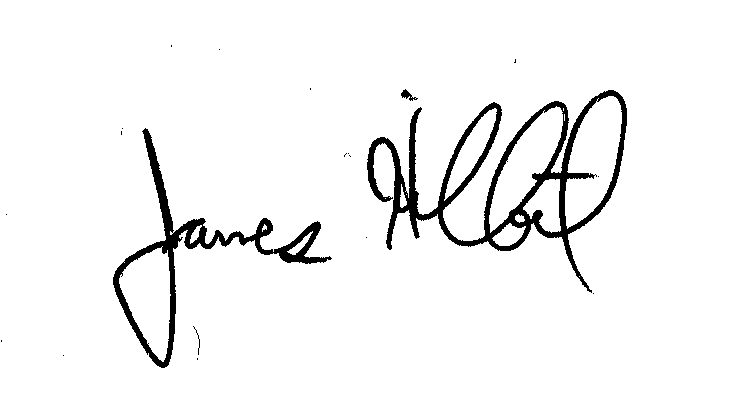 James Hilbert